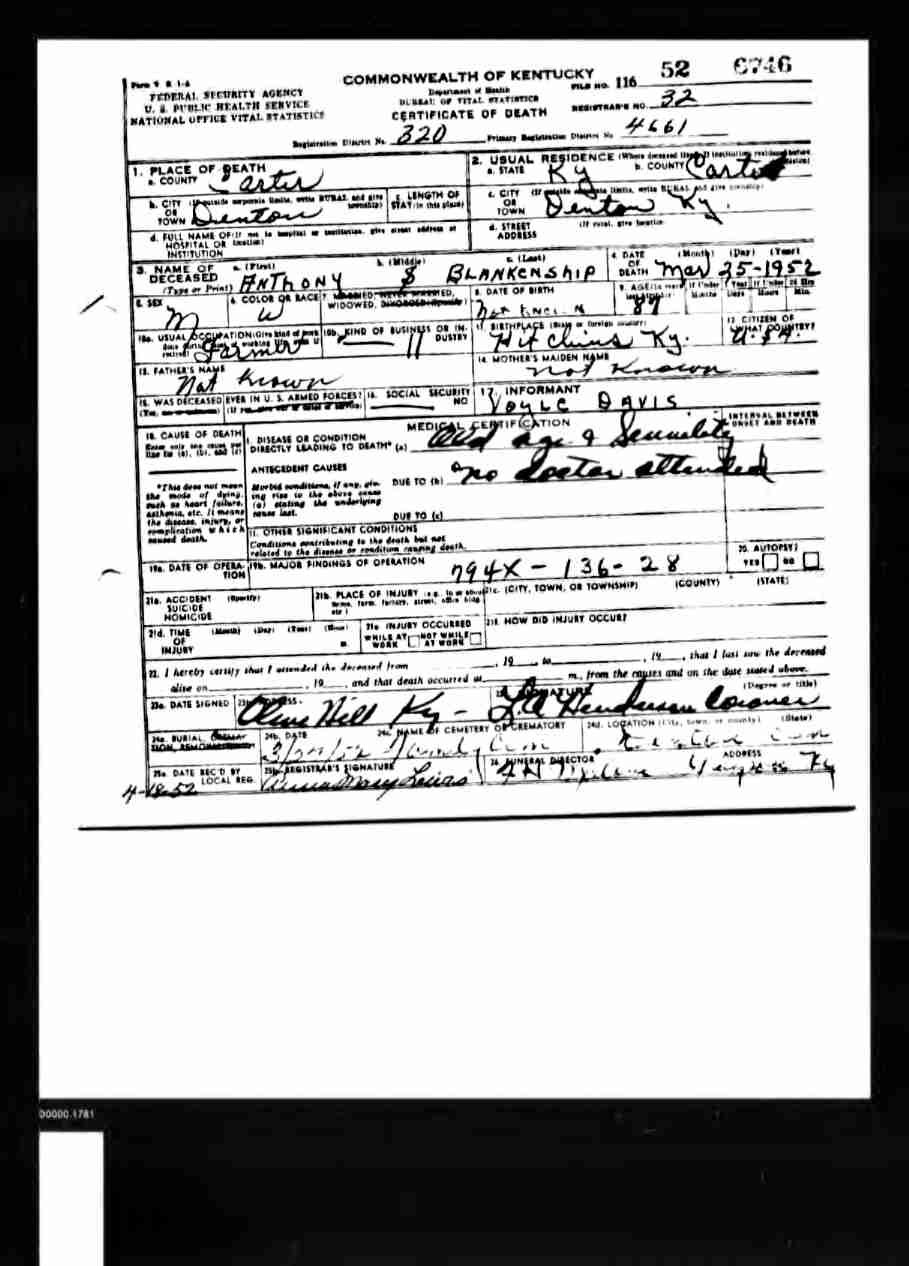 Form V S 1-A
FEDERAL SECURITY AGENCY
U. S. PUBLIC HEALTH SERVICE
NATIONAL OFFICE VITAL STATISTICS
COMMONWEALTH OF KENTUCKY
Department of Health
BUREAU OF VITAL STATISTICS
CERTIFICATE OF DEATH
FILE NO. 116 52 6746
REGISTRAR'S NO. 32
Registration District No. 320 Primary Registration District No. 4661
1. PLACE OF DEATH
a. COUNTY Carter
2. USUAL RESIDENCE (Where deceased lived. If institution, residence before
a. STATE Ky b. COUNTY Carter
b. CITY (If outside corporate limits, write RURAL and give township)
OR
TOWN Denton
c. LENGTH OF
STAY (in this place)
c. CITY (If outside corporate limits, write RURAL and give township)
OR
TOWN Denton Ky.
d. FULL NAME OF (If not in hospital or institution, give street address or location)
HOSPITAL OR
INSTITUTION
d. STREET (If rural, give location)
ADDRESS
3. NAME OF DECEASED (Type or Print)
a. (First) b. (Middle) c. (Last)
ANTHONY BLANKENSHIP
4. DATE OF DEATH (Month) (Day) (Year)
Mar 25-1952
5. SEX
M
6. COLOR OR RACE
W
7. MARRIED, NEVER MARRIED,
WIDOWED, DIVORCED (Specify)
8. DATE OF BIRTH
9. AGE (In years last birthday) If Under 1 Year If Under 24 Hrs
Months Days Hours Min.
10a. USUAL OCCUPATION (Give kind of work
Farmer
10b. KIND OF BUSINESS OR INDUSTRY
11. BIRTHPLACE (State or foreign country)
Hitchins Ky.
12. CITIZEN OF
WHAT COUNTRY?
U.S.A.
13. FATHER'S NAME
Not Known
14. MOTHER'S MAIDEN NAME
Not Known
15. WAS DECEASED EVER IN U. S. ARMED FORCES?
16. SOCIAL SECURITY NO.
17. INFORMANT
DAVIS
MEDICAL CERTIFICATION
INTERVAL BETWEEN
ONSET AND DEATH
18. CAUSE OF DEATH
Enter only one cause per
line for (a), (b), and (c)
I. DISEASE OR CONDITION
DIRECTLY LEADING TO DEATH* (a) Old age & Seniulity
ANTECEDENT CAUSES
Morbid conditions, if any, giving rise to the above cause (a) stating the underlying cause last.
DUE TO (b) no doctor attended
DUE TO (c)
*This does not mean
the mode of dying,
such as heart failure,
asthenia, etc. It means
the disease, injury, or
complication which
caused death.
II. OTHER SIGNIFICANT CONDITIONS
Conditions contributing to the death but not
related to the disease or condition causing death.
19a. DATE OF OPERATION
19b. MAJOR FINDINGS OF OPERATION
794X-136-28
20. AUTOPSY?
YES NO
21a. ACCIDENT (Specify)
SUICIDE
HOMICIDE
21b. PLACE OF INJURY (e.g., in or about
home, farm, factory, street, office bldg., etc.)
21c. (CITY, TOWN, OR TOWNSHIP) (COUNTY) (STATE)
21d. TIME (Month) (Day) (Year) (Hour)
OF
INJURY m
21e. INJURY OCCURRED
WHILE AT WORK NOT WHILE AT WORK
21f. HOW DID INJURY OCCUR?
22. I hereby certify that I attended the deceased from , 19 , to , 19 , that I last saw the deceased
alive on , 19 , and that death occurred at m., from the causes and on the date stated above.
23a. DATE SIGNED
23b. ADDRESS
Olive Hill Ky
23c. SIGNATURE (Degree or title)
Henderson Coroner
24a. BURIAL, CREMATION, REMOVAL
24b. DATE
24c. NAME OF CEMETERY OR CREMATORY
24d. LOCATION (City, town, or county) (State)
25a. DATE REC'D BY
LOCAL REG.
4-18-52
25b. REGISTRAR'S SIGNATURE
Anna Mary Lewis
26. FUNERAL DIRECTOR ADDRESS
Ky
00000.1781